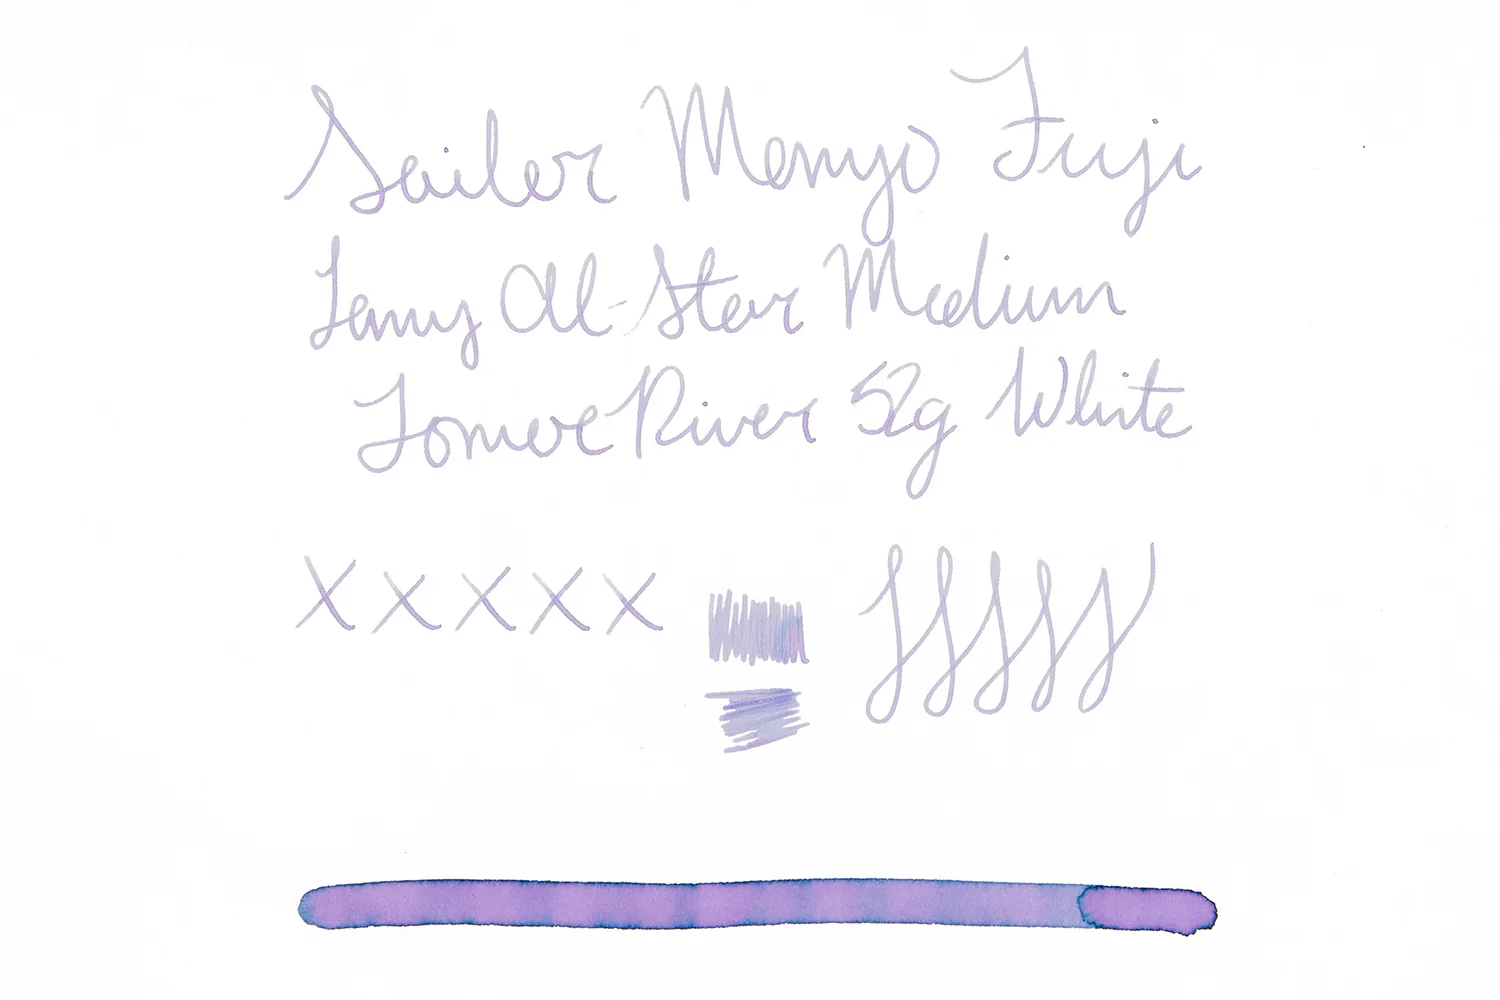 Sailor Manyo Fuji
Lamy Al-Star Medium
Tomoe River 52g White
X X X X X